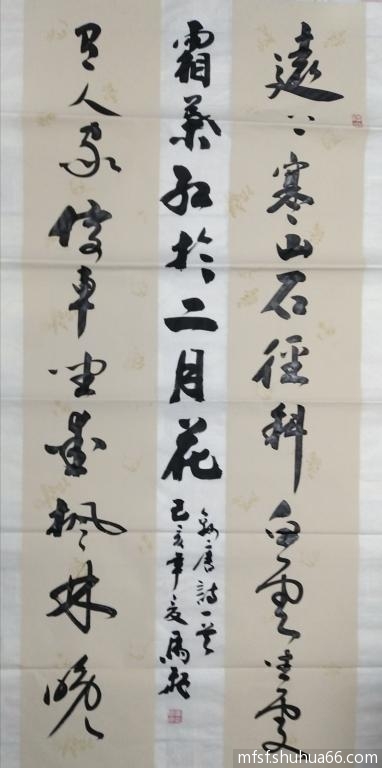 遠上寒山石徑斜白雲生處
有人家停車坐愛楓林晚
霜葉紅於二月花
錄唐詩一首
己亥年夏馬
mfsfshuhua66.com